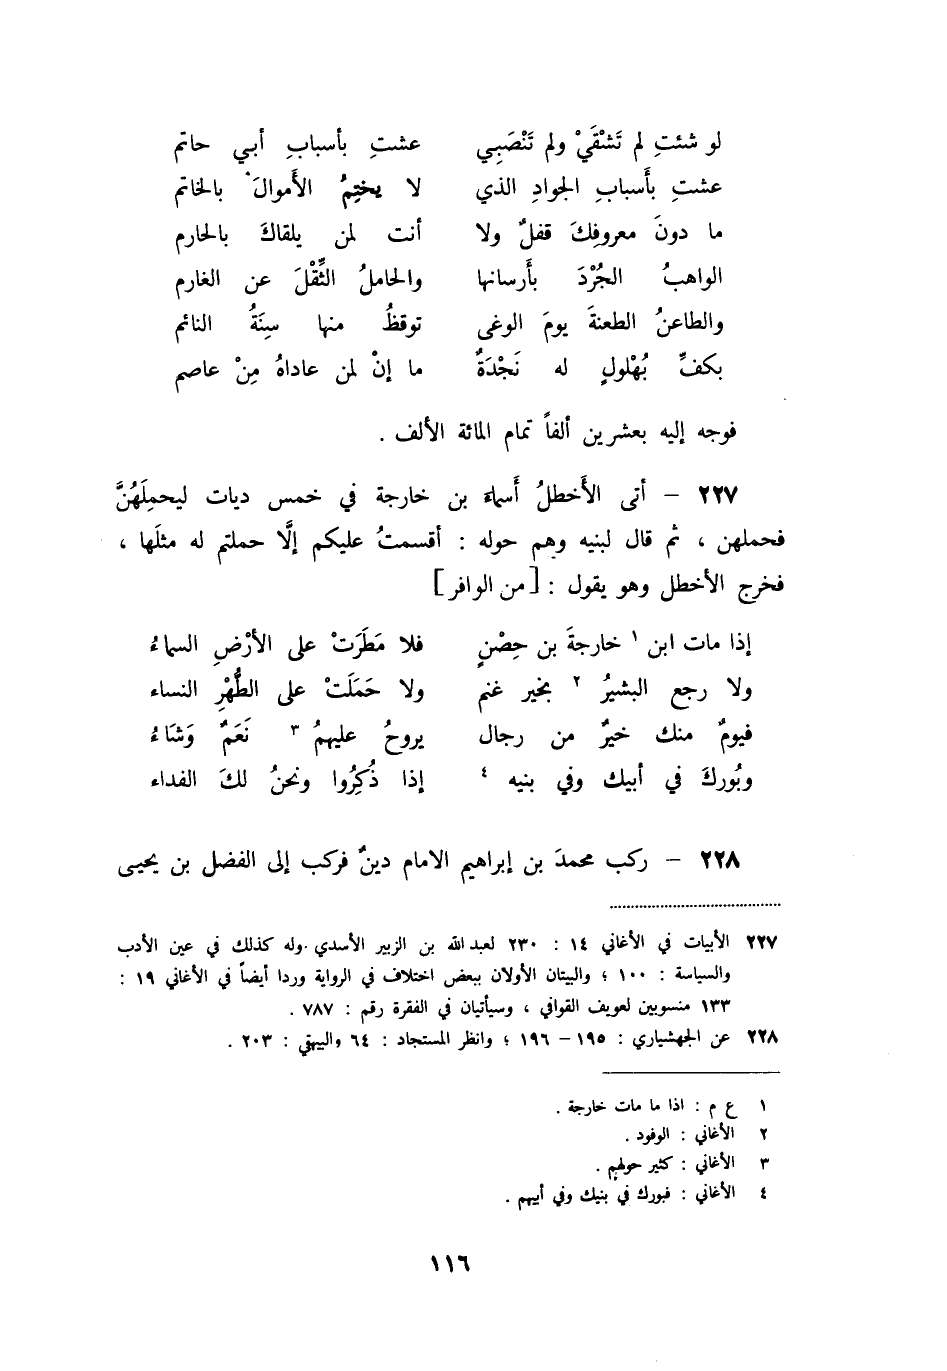 لو شئتِ لم تَشْقَيْ ولم تَنْصَبِي عشتِ بأسبابِ أبي حاتم
عشتِ بأَسبابِ الجوادِ الذي لا يختِمُ الأَموالَ بالخاتم
ما دونَ معروفِكَ قفلٌ ولا أنت لمن يلقاكَ بالحارم
الواهبُ الجُرْدَ بأَرسانها والحاملُ الثِّقْلَ عن الغارم
والطاعنُ الطعنةَ يومَ الوغى توقظُ منها سِنَةُ النائم
بكفِّ بُهْلولٍ له نَجْدَةٌ ما إنْ لمن عاداهُ مِنْ عاصم
فوجه إليه بعشرين ألفاً تمام المائة الألف .
٢٢٧ – أتى الأَخطلُ أَسماءَ بن خارجة في خمس ديات ليحمِلَهُنَّ
فحملهن ، ثم قال لبنيه وهم حوله : أقسمتُ عليكم إلَّا حملتم له مثلَها ،
فخرج الأخطل وهو يقول : [من الوافر]
إذا مات ابن ١ خارجةَ بن حِصْنٍ فلا مَطَرَتْ على الأرْضِ السماءُ
ولا رجع البشيرُ ٢ بخير غنم ولا حَمَلَتْ على الطُّهْرِ النساء
فيومٌ منك خيرٌ من رجال يروحُ عليهمُ ٣ نَعَمٌ وَشَاءُ
وبُوركَ في أبيك وفي بنيه ٤ إذا ذُكِرُوا ونحنُ لكَ الفداء
٢٢٨ – ركب محمدَ بن إبراهيم الامام دينٌ فركب إلى الفضل بن يحيى
٢٢٧ الأبيات في الأغاني ١٤ : ٢٣٠ لعبد الله بن الزبير الأسدي وله كذلك في عين الأدب
والسياسة : ١٠٠ ؛ والبيتان الأولان ببعض اختلاف في الرواية وردا أيضاً في الأغاني ١٩ :
١٣٣ منسوبين لعويف القوافي ، وسيأتيان في الفقرة رقم : ٧٨٧ .
٢٢٨ عن الجهشياري : ١٩٥ – ١٩٦ ؛ وانظر المستجاد : ٦٤ والبيهقي : ٢٠٣ .
١ ع م : اذا ما مات خارجة .
٢ الأغاني : الوفود .
٣ الأغاني : كثير حولهم .
٤ الأغاني : فبورك في بنيك وفي أبيهم .
١١٦